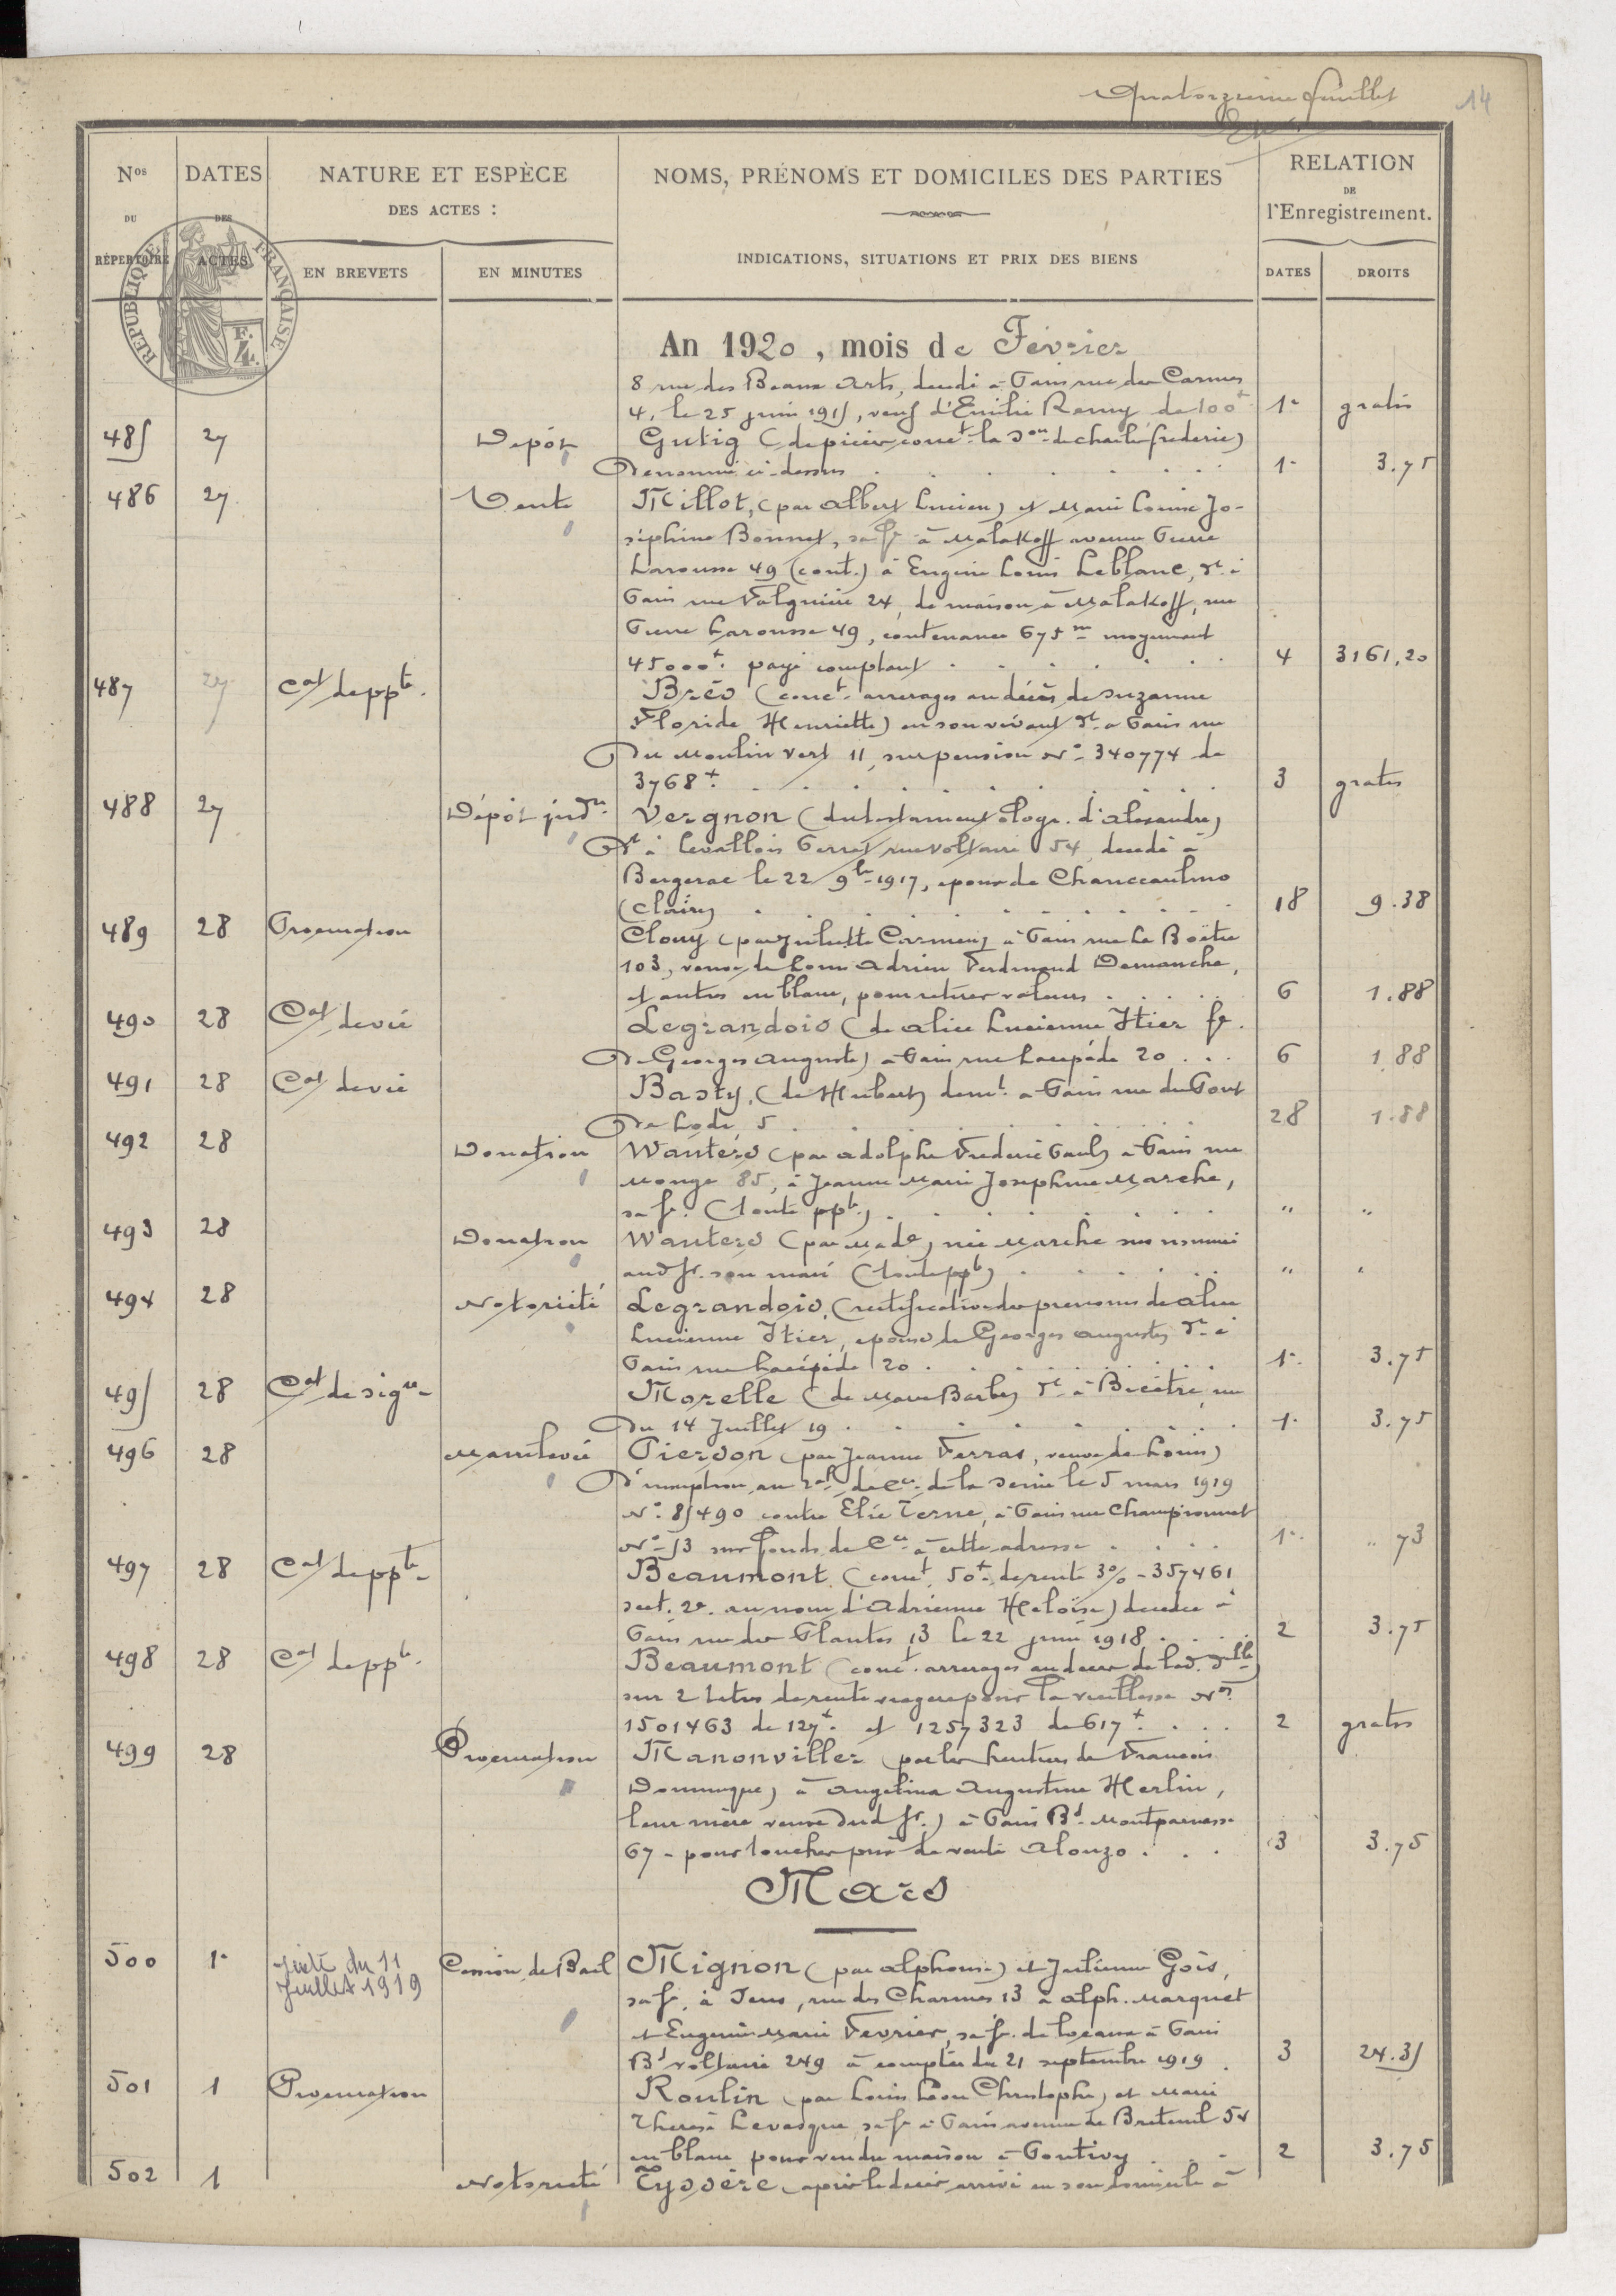 Quatorzième feuillet 14
Nos DU RÉPERTOIRE
DATES DES ACTES
NATURE ET ESPÈCE
DES ACTES :
EN BREVETS
EN MINUTES
NOMS, PRÉNOMS ET DOMICILES DES PARTIES
INDICATIONS, SITUATIONS ET PRIX DES BIENS
RELATION
DE
l'Enregistrement.
DATES
DROITS
RÉPUBLIQUE FRANÇAISE
An 1920, mois de Février
8 rue des Beaux Arts, décédé à Paris rue des Carmes
4, le 25 juin 1915, veuf d'Emilie Remy de 100f 1er gratis
485 27 Depôt Gutig (de pièces conct la son de charles frederic)
Denommé ci-dessus 1er 3.75
486 27 Vente Millot, (par Albert Lucien) et Marie Louise Jo-
séphine Bonnet, sa fe à Malakoff avenue Pierre
Larousse 49 (cont.) à Eugène Louis Leblanc, dt à
Paris rue Falguière 24, de maison à Malakoff, rue
Pierre Larousse 49, contenance 675m moyennant
45000f. payé comptant 4 3161,20
487 27 Cat de ppté. Brés (conct. arrerages au décès de Suzanne
Floride Henriette) en son vivant dt à Paris rue
Du Moulin Vert 11, sur pension No 340774 de
3768f. 3 gratis
488 27 Dépôt judre Vergnon (du testament ologr. d'Alexandre)
Dt à Levallois Perret rue Voltaire 54, decedé à
Bergerac le 22 9bre 1917, epoux de Chanceaulme
(Claire) 18 9.38
489 28 Procuration Clouy (par Juliette Carmen) à Paris rue La Boëtie
103, veuve de Louis Adrien Ferdinand Demanche,
et autres en blanc, pour retirer valeurs 6 1.88
490 28 Cat de vie Legrandois (de Alice Lucienne Itier fe.
De Georges Auguste) à Paris rue Lacepède 20 6 1.88
491 28 Cat de vie Basty, (de Hubert) demt à Paris rue du Pont
De Lodi, 5 28 1.88
492 28 Donation Wauters (par Adolphe Frederic Paul) à Paris rue
Monge 85, à Jeanne Marie Josephine Marche,
sa fe. (toute ppté) " "
493 28 Donation Wauters (par Made) née Marche sus nommée
aud sr. son mari (toute ppté) " "
494 28 Notoriété Legrandois, (rectificative des prenoms de Alice
Lucienne Itier, epouse de Georges Auguste) dt à
Paris rue Lacépède 20 1er 3.75
495 28 Cat de sigre Mozelle (de Marie Barbe) dt à Bicêtre, rue
Du 14 Juillet 19 1er 3.75
496 28 Mainlevée Pierson (par Jeanne Ferras, veuve de Louis)
D'inscription au de Ce de la Seine le 5 mars 1919
No 85490 contre Elie Terne, à Paris rue Championnet
No 53 sur fonds de Ce à cette adresse 1er " 73
497 28 Cat de ppté Beaumont (conct 50f de rente 3% - 357461
sect. 2e. au nom d'Adrienne Heloïse) decedee à
Paris rue des Plantes 13 le 22 juin 1918 2 3.75
498 28 Cat de ppté. Beaumont (conct. arrerages au deces de lad. Delle)
sur 2 titres de rente viagere pour la vieillesse Nos
1501463 de 127f. et 1257323 de 617f. 2 gratis
499 28 Procuration Manonviller (par les heritiers de Francois
Dominique) à Angelina Augustine Herlin,
leur mère veuve dud sr.) à Paris Bd Montparnasse
67 - pour toucher prix de vente Alonzo 3 3.75
Mars
500 1er suite du 11 Juillet 1919 Cession de Bail Mignon (par Alphonse) et Julienne Gois,
sa fe. à Sens, rue des Charmes 13 à Alph. Marquet
et Eugenie Marie Fevrier, sa fe. de locaux à Paris
Bd Voltaire 249 à compter du 21 septembre 1919 3 24.35
501 1 Procuration Roulin (par Louis Léon Christophe) et Marie
Therese Levesque sa fe à Paris avenue de Breteuil 54
en blanc pour vendre maison à Pontivy 2 3.75
502 1 Notoriété Tyssère (après le décès arrivé en son domicile à